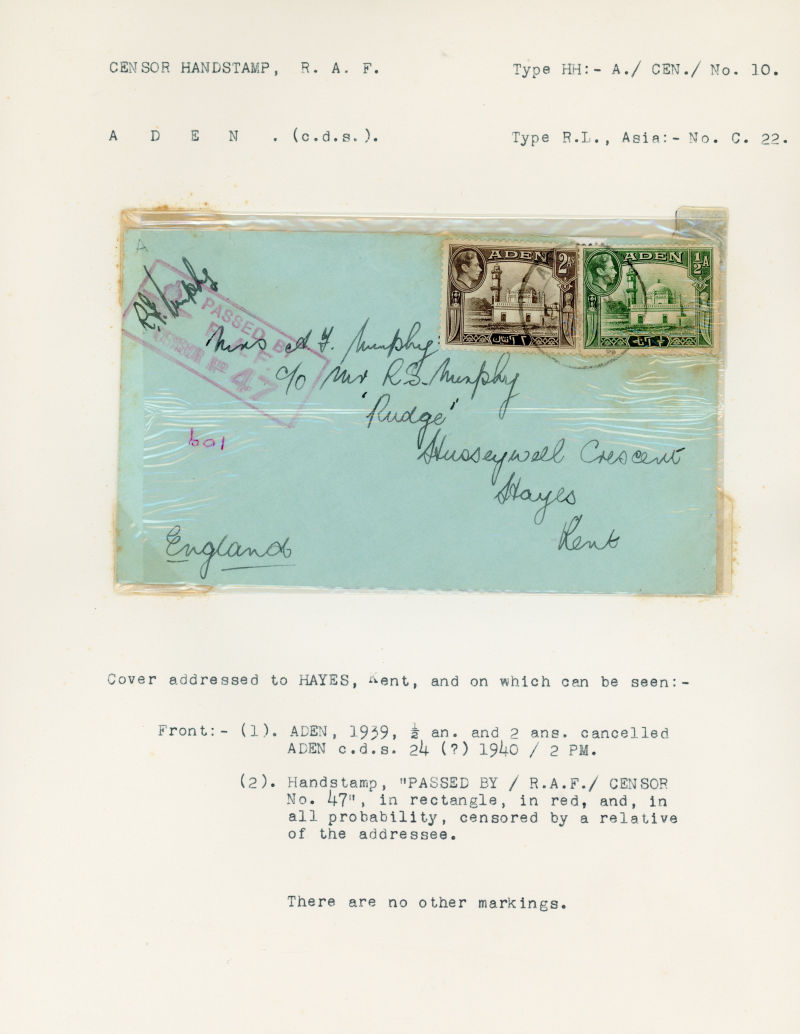 CENSOR HANDSTAMP, R. A. F. Type HH:- A./ CEN./ No. 10.
A D E N . (c.d.s.). Type R.L., Asia:- No. C. 22.
A
ADEN 2 AS
ADEN ½ A
PASSED BY
R.A.F.
CENSOR No 47
Murphy
Miss A. F. Murphy
c/o Mr R.S. Murphy
'Rudge'
Husseywell Crescent
Hayes
Kent
England
601
Cover addressed to HAYES, Kent, and on which can be seen:-
Front:- (1). ADEN, 1939, ½ an. and 2 ans. cancelled
ADEN c.d.s. 24 (?) 1940 / 2 PM.
(2). Handstamp, "PASSED BY / R.A.F./ CENSOR
No. 47", in rectangle, in red, and, in
all probability, censored by a relative
of the addressee.
There are no other markings.